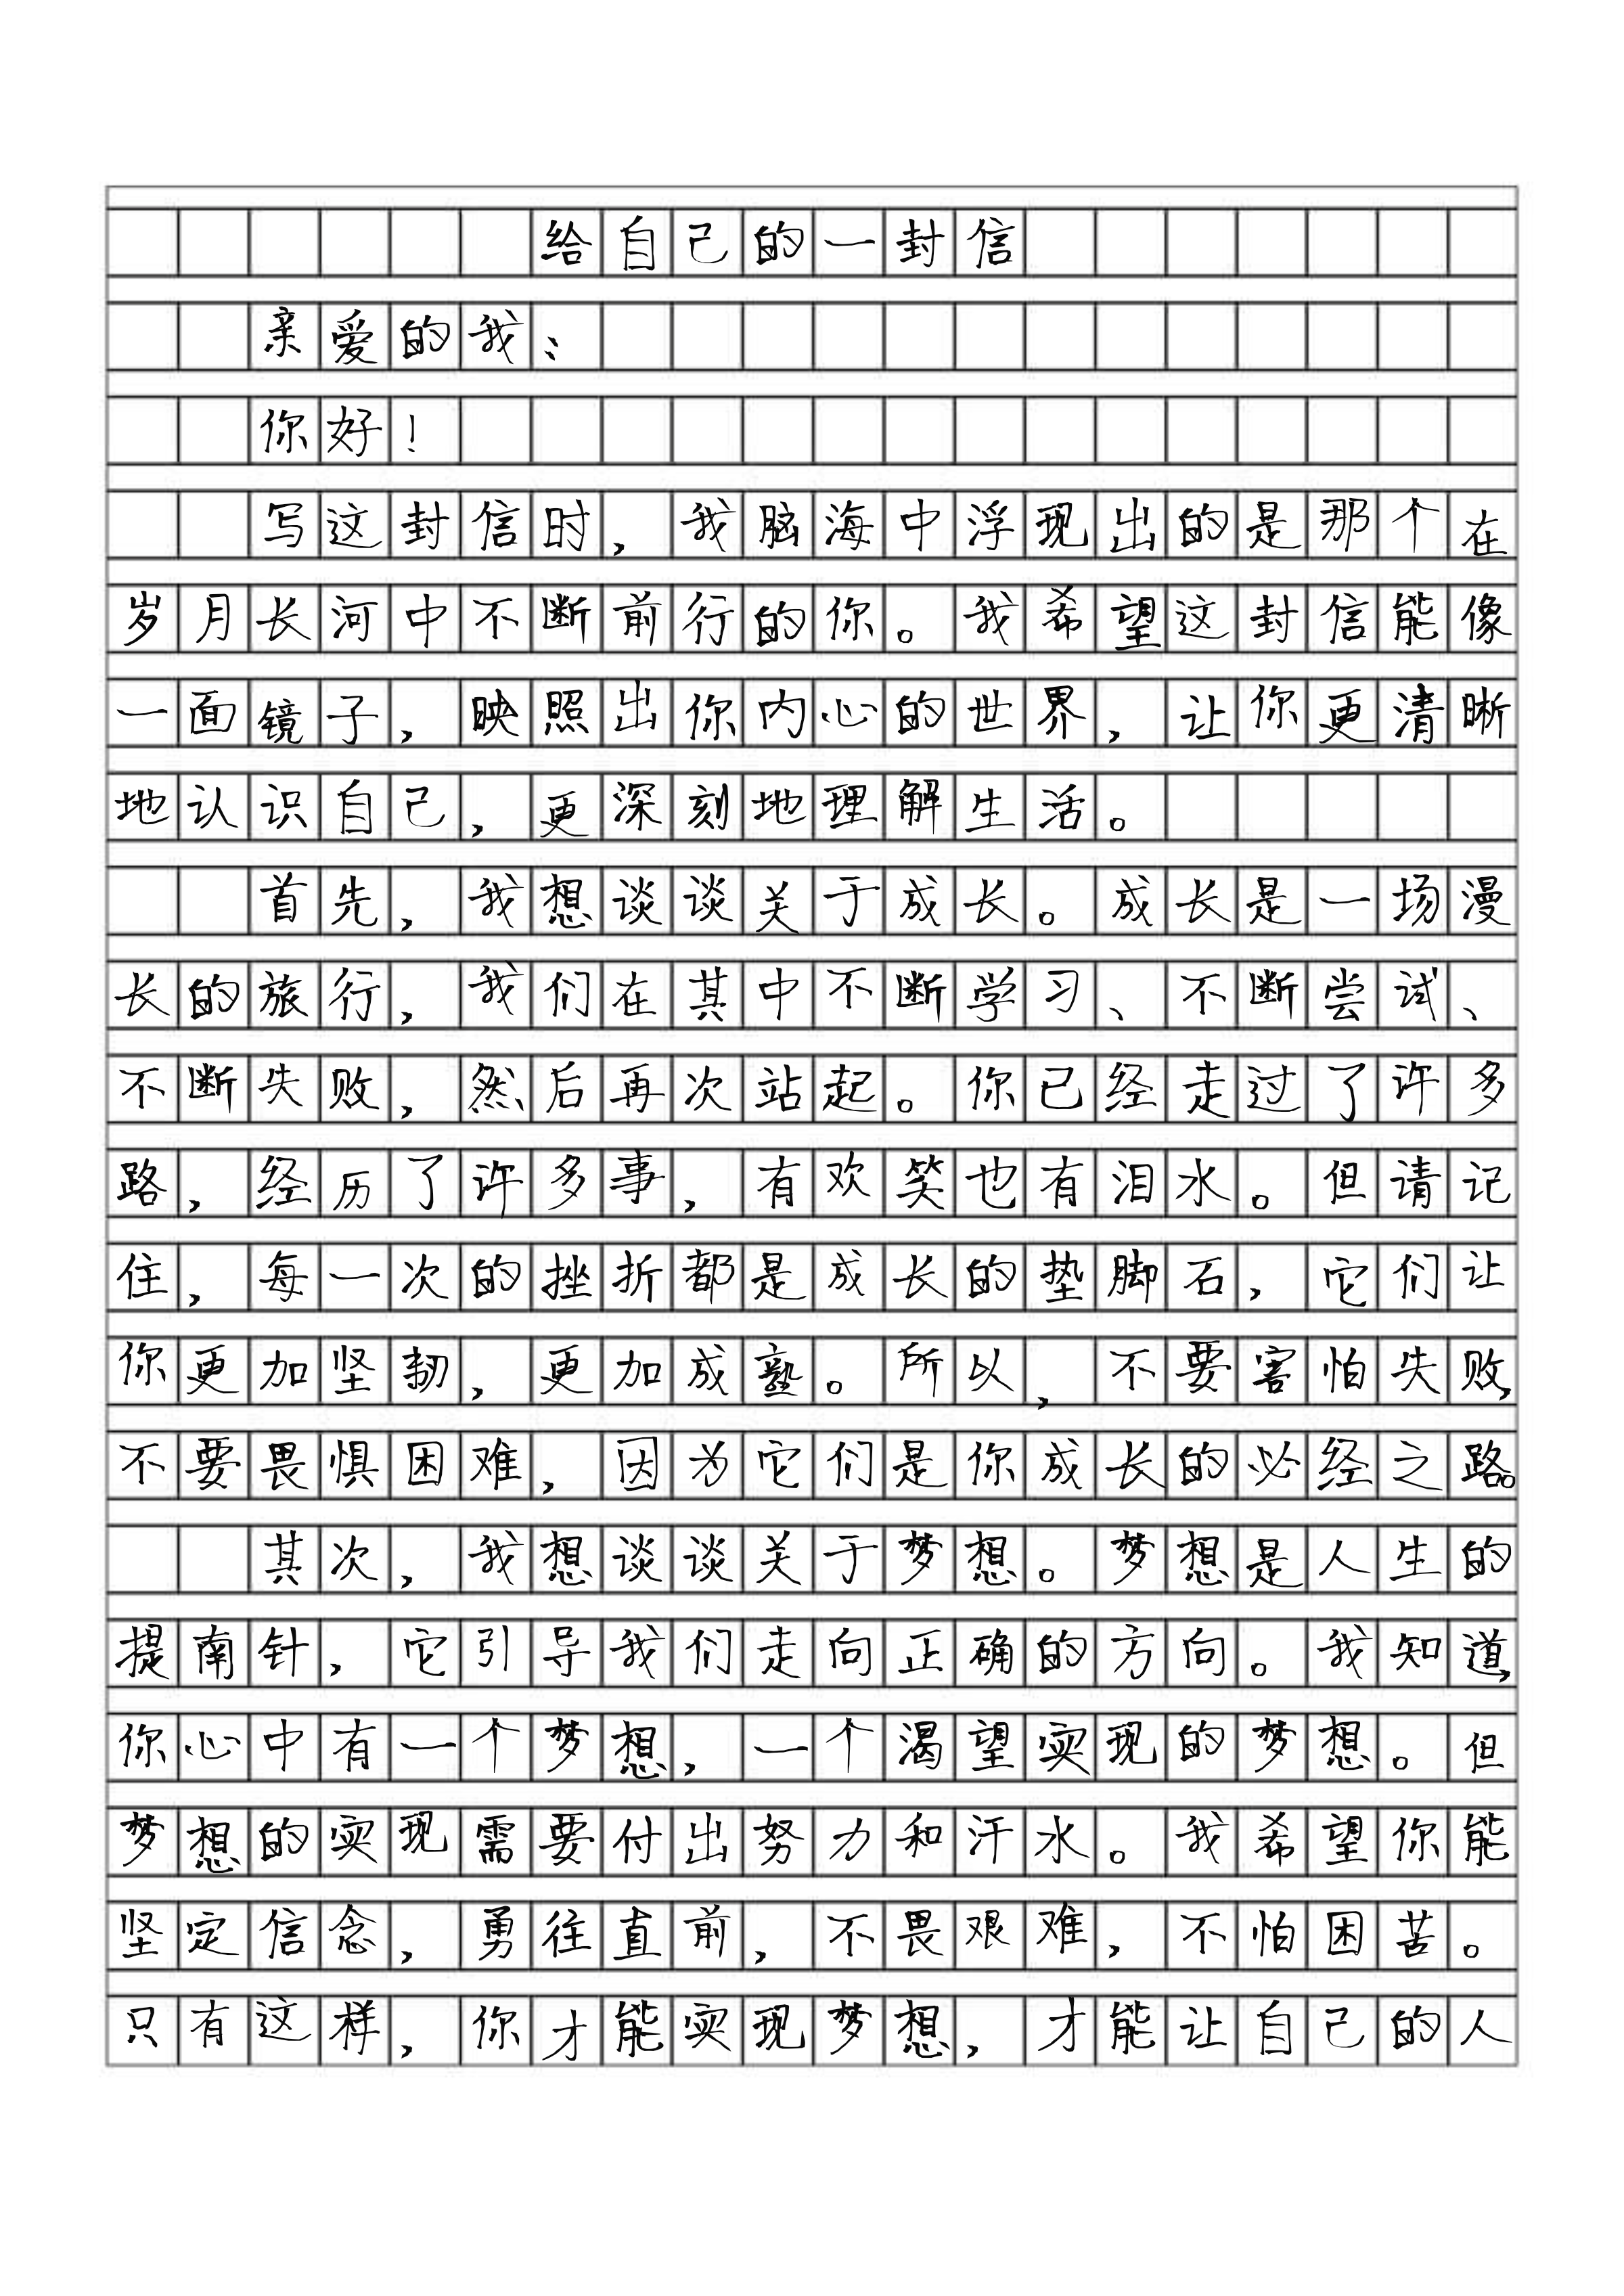 给自己的一封信
亲爱的我：
你好！
写这封信时，我脑海中浮现出的是那个在
岁月长河中不断前行的你。我希望这封信能像
一面镜子，映照出你内心的世界，让你更清晰
地认识自己，更深刻地理解生活。
首先，我想谈谈关于成长。成长是一场漫
长的旅行，我们在其中不断学习、不断尝试、
不断失败，然后再次站起。你已经走过了许多
路，经历了许多事，有欢笑也有泪水。但请记
住，每一次的挫折都是成长的垫脚石，它们让
你更加坚韧，更加成熟。所以，不要害怕失败，
不要畏惧困难，因为它们是你成长的必经之路。
其次，我想谈谈关于梦想。梦想是人生的
提南针，它引导我们走向正确的方向。我知道，
你心中有一个梦想，一个渴望实现的梦想。但
梦想的实现需要付出努力和汗水。我希望你能
坚定信念，勇往直前，不畏艰难，不怕困苦。
只有这样，你才能实现梦想，才能让自己的人